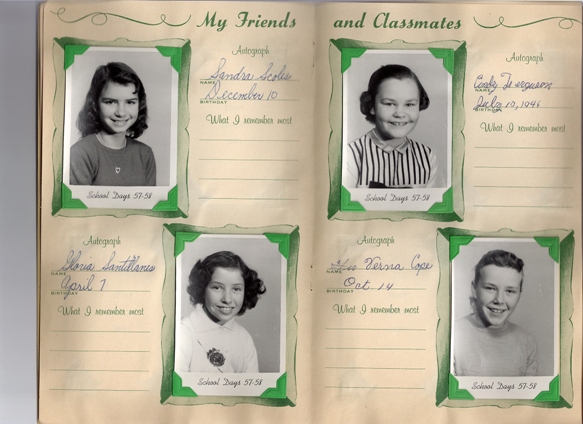 My Friends and Classmates
Autograph
Sandra Scoles
NAME
December 10
BIRTHDAY
What I remember most
School Days 57-58
Autograph
Gloria Santillanes
NAME
April 7
BIRTHDAY
What I remember most
School Days 57-58
Autograph
Ferguson
NAME
July 10, 1946
BIRTHDAY
What I remember most
School Days 57-58
Autograph
Verna Cope
NAME
Oct 14
BIRTHDAY
What I remember most
School Days 57-58